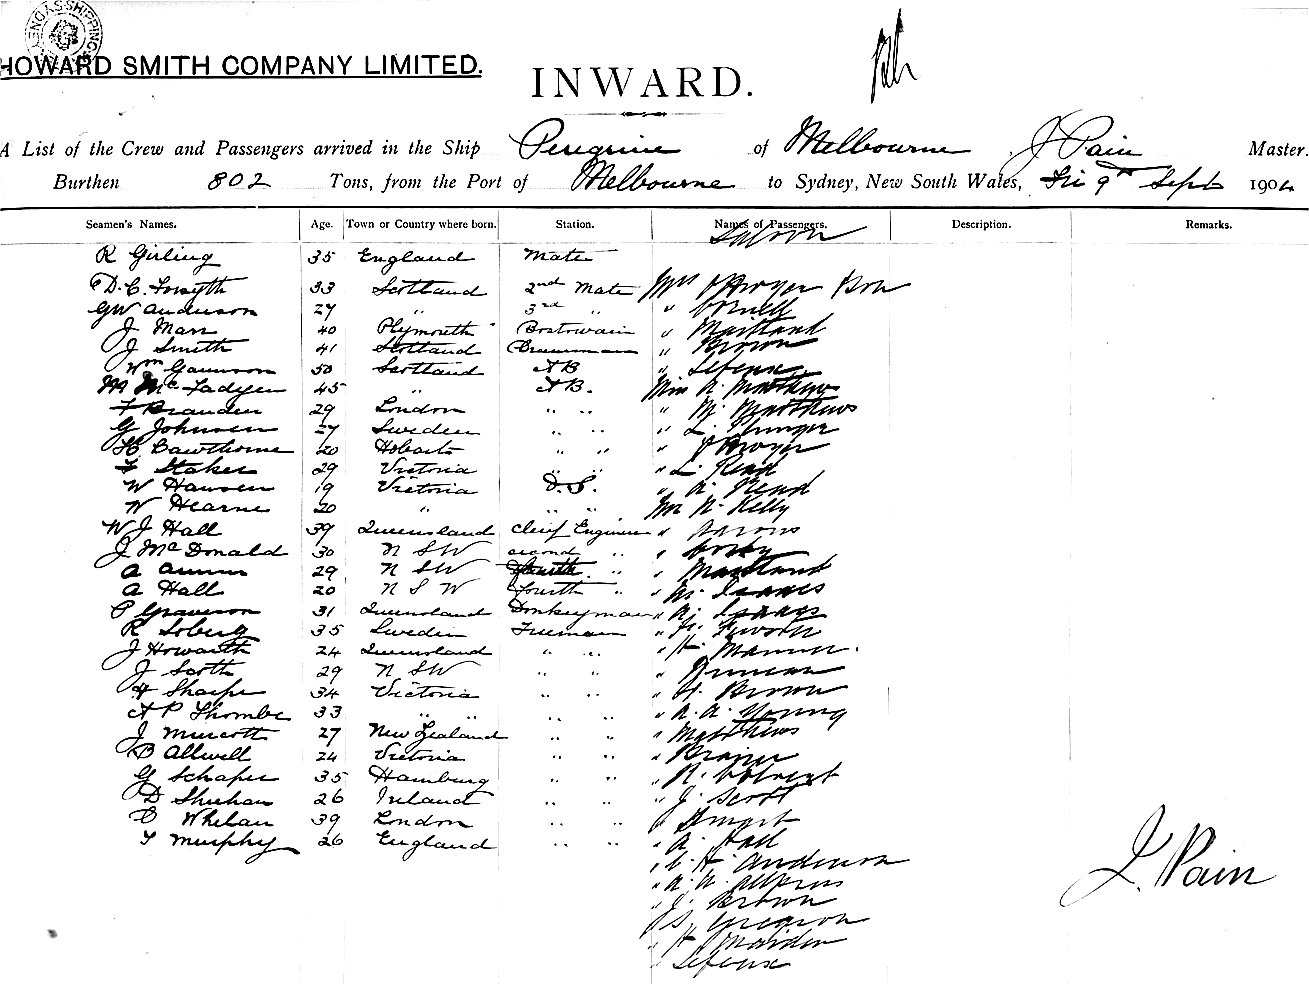 SHIPPING
HOWARD SMITH COMPANY LIMITED.
INWARD.
A List of the Crew and Passengers arrived in the Ship Peregrine of Melbourne J Pain Master.
Burthen 802 Tons, from the Port of Melbourne to Sydney, New South Wales, Fri 9th Sept 1904
Seamen's Names. Age. Town or Country where born. Station. Names of Passengers. Description. Remarks.
Saloon
R Girling 35 England Mate
D. C. Forsyth 33 Scotland 2nd Mate Mrs
GW Anderson 27 " 3rd " " Cornell
J Marr 40 Plymouth Boatswain " Maitland
J Smith 41 Scotland " Brown
Wm 50 Scotland AB "
M McFadyen 45 " AB. Miss A. Matthews
29 London " " " M. Matthews
G Johnsen 27 Sweden " " " L.
H Cawthorne 20 Hobart " " "
F Staker 29 Victoria " " " L. Read
W Hansen 19 Victoria D.S. " A. Read
W Hearne 20 " " " Mr N. Kelly
W J Hall 39 Queensland Chief Engineer " Aarons
J McDonald 30 N S W second " "
A 29 N S W fourth " " Maitland
A Hall 20 N S W fourth " " Isaacs
P 31 Queensland Donkeyman " Isaacs
R Soberg 35 Sweden Fireman "
J Howarth 24 Queensland " " " H.
J Scott 29 N S W " " " Duncan
H Sharpe 34 Victoria " " " H. Brown
A P Thombe 33 " " " " " A. A. Young
J Murcott 27 New Zealand " " " Matthews
B Allwell 24 Victoria " " "
G Schaper 35 Hamburg " " " R.
D Sheehan 26 Ireland " " " J. Scott
C Whelan 39 London " " " Smart
T Murphy 26 England " " " A. Hall
" C. H. Anderson
" A. A.
" J. Brown
" S. Gregson
" H Maiden
"
J. Pain